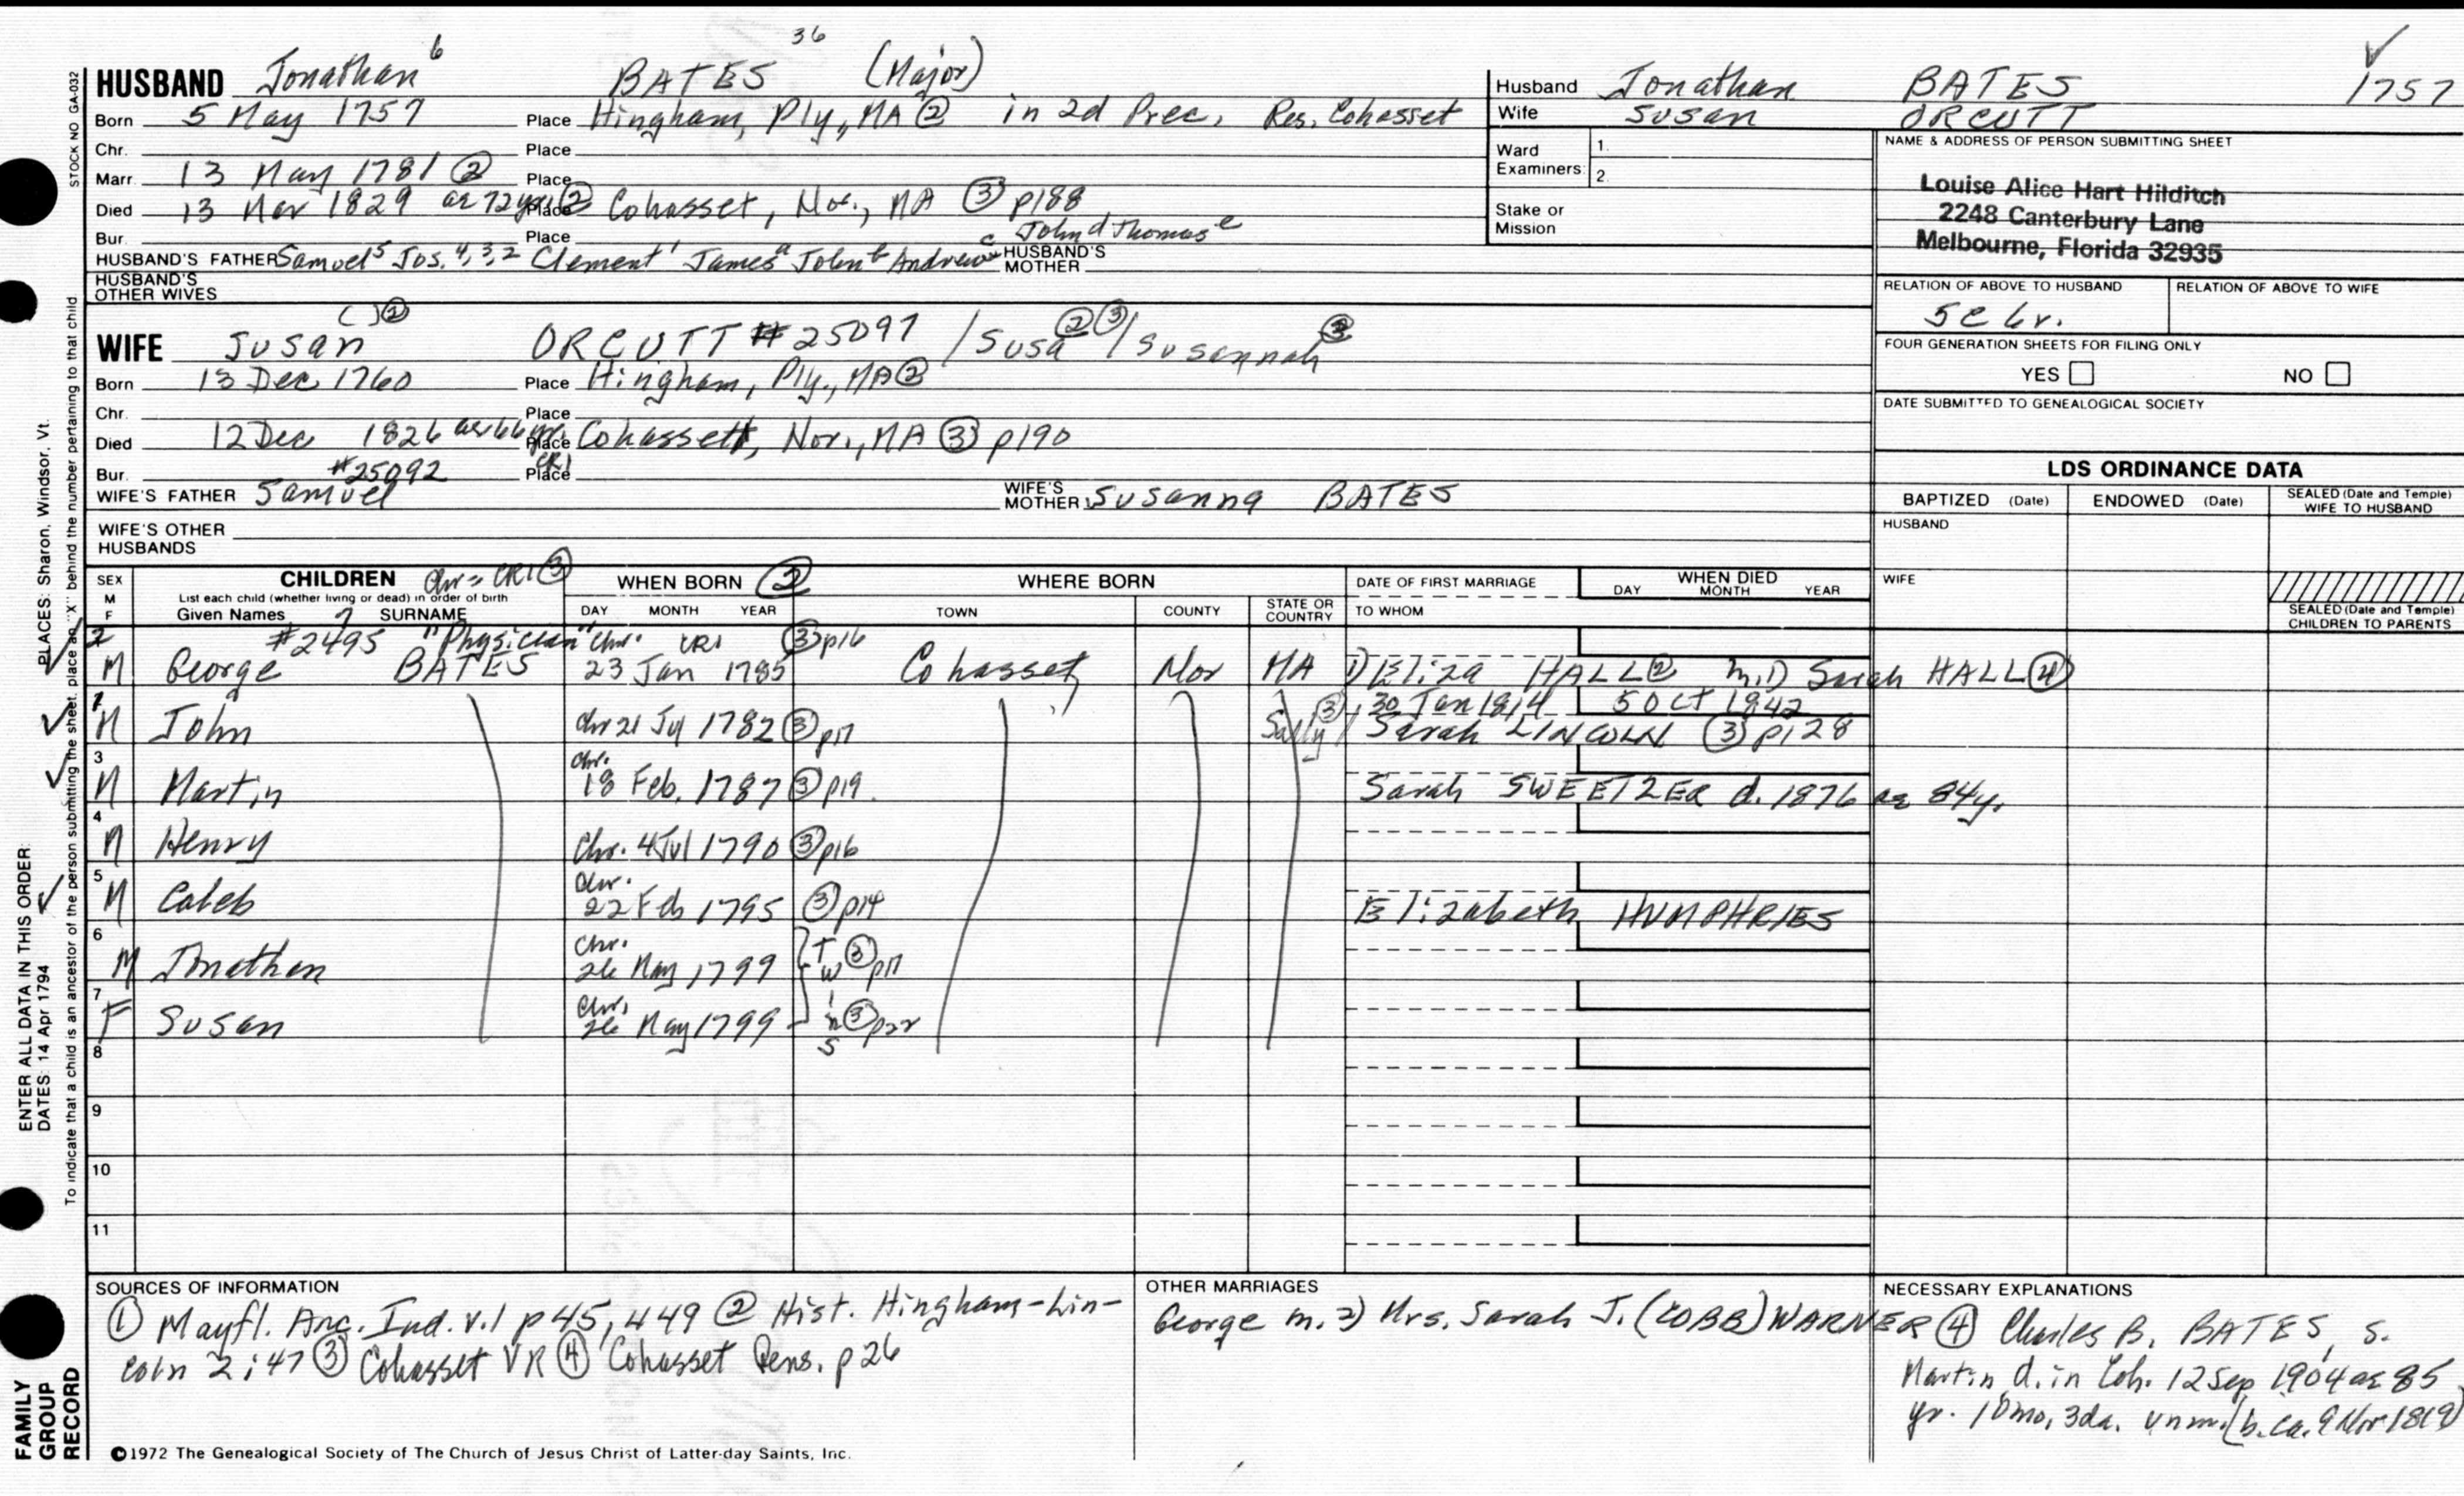 36
HUSBAND Jonathan 6 BATES (Major)
Born 5 May 1757 Place Hingham, Ply., MA ② in 2d Prec. Res. Cohasset
Chr. Place
Marr. 13 May 1781 ② Place
Died 13 Nov 1829 ae 72 yr ② Place Cohasset, Nor., MA ③ p188
Bur. Place
John d Thomas e
HUSBAND'S FATHER Samuel 5 Jos. 4, 3, 2 Clement 1 James a John b Andrew c HUSBAND'S MOTHER
HUSBAND'S OTHER WIVES
( ) ②
WIFE Susan ORCUTT #25097 / Susa ②③ / Susannah ③
Born 13 Dec 1760 Place Hingham, Ply., MA ②
Chr. Place
Died 12 Dec 1826 ae 66 yr. Place Cohassett, Nor., MA ③ p190
Bur. Place CR1
#25092
WIFE'S FATHER Samuel WIFE'S MOTHER Susanna BATES
WIFE'S OTHER HUSBANDS
Husband Jonathan BATES 1757
Wife Susan ORCUTT
Ward Examiners: 1. 2.
Stake or Mission
NAME & ADDRESS OF PERSON SUBMITTING SHEET
Louise Alice Hart Hilditch
2248 Canterbury Lane
Melbourne, Florida 32935
RELATION OF ABOVE TO HUSBAND RELATION OF ABOVE TO WIFE
5c 6r.
FOUR GENERATION SHEETS FOR FILING ONLY
YES NO
DATE SUBMITTED TO GENEALOGICAL SOCIETY
LDS ORDINANCE DATA
BAPTIZED (Date) ENDOWED (Date) SEALED (Date and Temple) WIFE TO HUSBAND
HUSBAND
WIFE
SEALED (Date and Temple) CHILDREN TO PARENTS
SEX M F
CHILDREN Chr = CR1 ③
List each child (whether living or dead) in order of birth
Given Names 7 SURNAME
WHEN BORN ②
DAY MONTH YEAR
WHERE BORN
TOWN COUNTY STATE OR COUNTRY
DATE OF FIRST MARRIAGE
TO WHOM
WHEN DIED
DAY MONTH YEAR
2 #2495 "Physician" Chr. CR1 ③ p16
M George BATES 23 Jan 1785 Cohasset Nor MA 1) Eliza HALL ② m.1) Sarah HALL ④
1 30 Jan 1814 5 Oct 1942
M John Chr 21 Jul 1782 ③ p17 Sally ③ / Sarah LINCOLN ③ p128
3 Chr.
M Martin 18 Feb. 1787 ③ p19. Sarah SWEETZER d. 1876 ae 84y.
4
M Henry Chr. 4 Jul 1790 ③ p16
5 Chr.
M Caleb 22 Feb 1795 ③ p14 Elizabeth HUMPHRIES
6 Chr.
M Jonathan 26 May 1799 Twins ③ p17
7 Chr.
F Susan 26 May 1799 ③ p22
8
9
10
11
SOURCES OF INFORMATION
① Mayfl. Anc. Ind. v.1 p 45, 449 ② Hist. Hingham-Lin-
coln 2:47 ③ Cohasset VR ④ Cohasset Gens. p 26
OTHER MARRIAGES
George m. 2) Mrs. Sarah J. (COBB) WARNER ④
NECESSARY EXPLANATIONS
Charles B. BATES, s.
Martin, d. in Coh. 12 Sep 1904 ae 85
yr. 10mo, 3da. unm. (b. ca. 9 Nov 1818)
©1972 The Genealogical Society of The Church of Jesus Christ of Latter-day Saints, Inc.
STOCK NO GA-032
PLACES: Sharon, Windsor, Vt.
ENTER ALL DATA IN THIS ORDER:
DATES: 14 Apr 1794
To indicate that a child is an ancestor of the person submitting the sheet, place an "X" behind the number pertaining to that child.
FAMILY
GROUP
RECORD